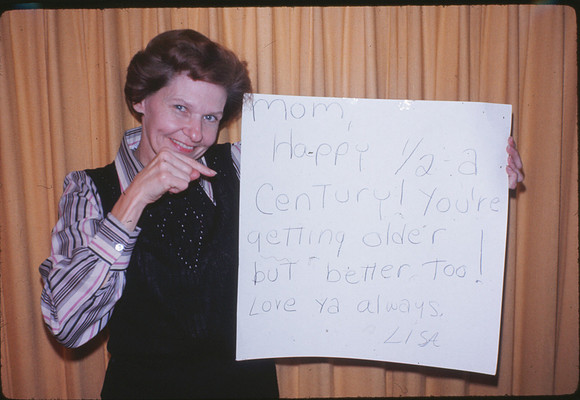 Mom,
Happy 1/2 a
Century! You're
getting older
but better too!
Love ya always,
Lisa